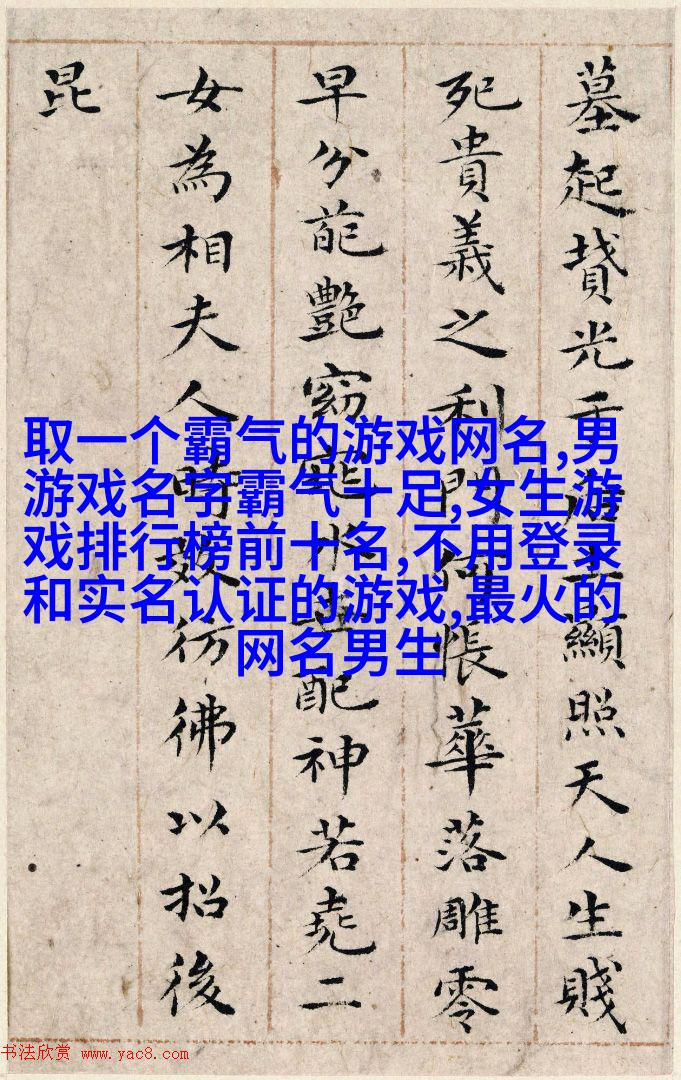 墓起賁光顯照天人生賤
死貴義之利門何悵華落雕零
早分葩艷窈窕配神若堯二
女為相夫人時效彷彿以招後
昆
取一个霸气的游戏网名,男
游戏名字霸气十足,女生游
戏排行榜前十名,不用登录
和实名认证的游戏,最火的
网名男生
书法欣赏 www.yac8.com